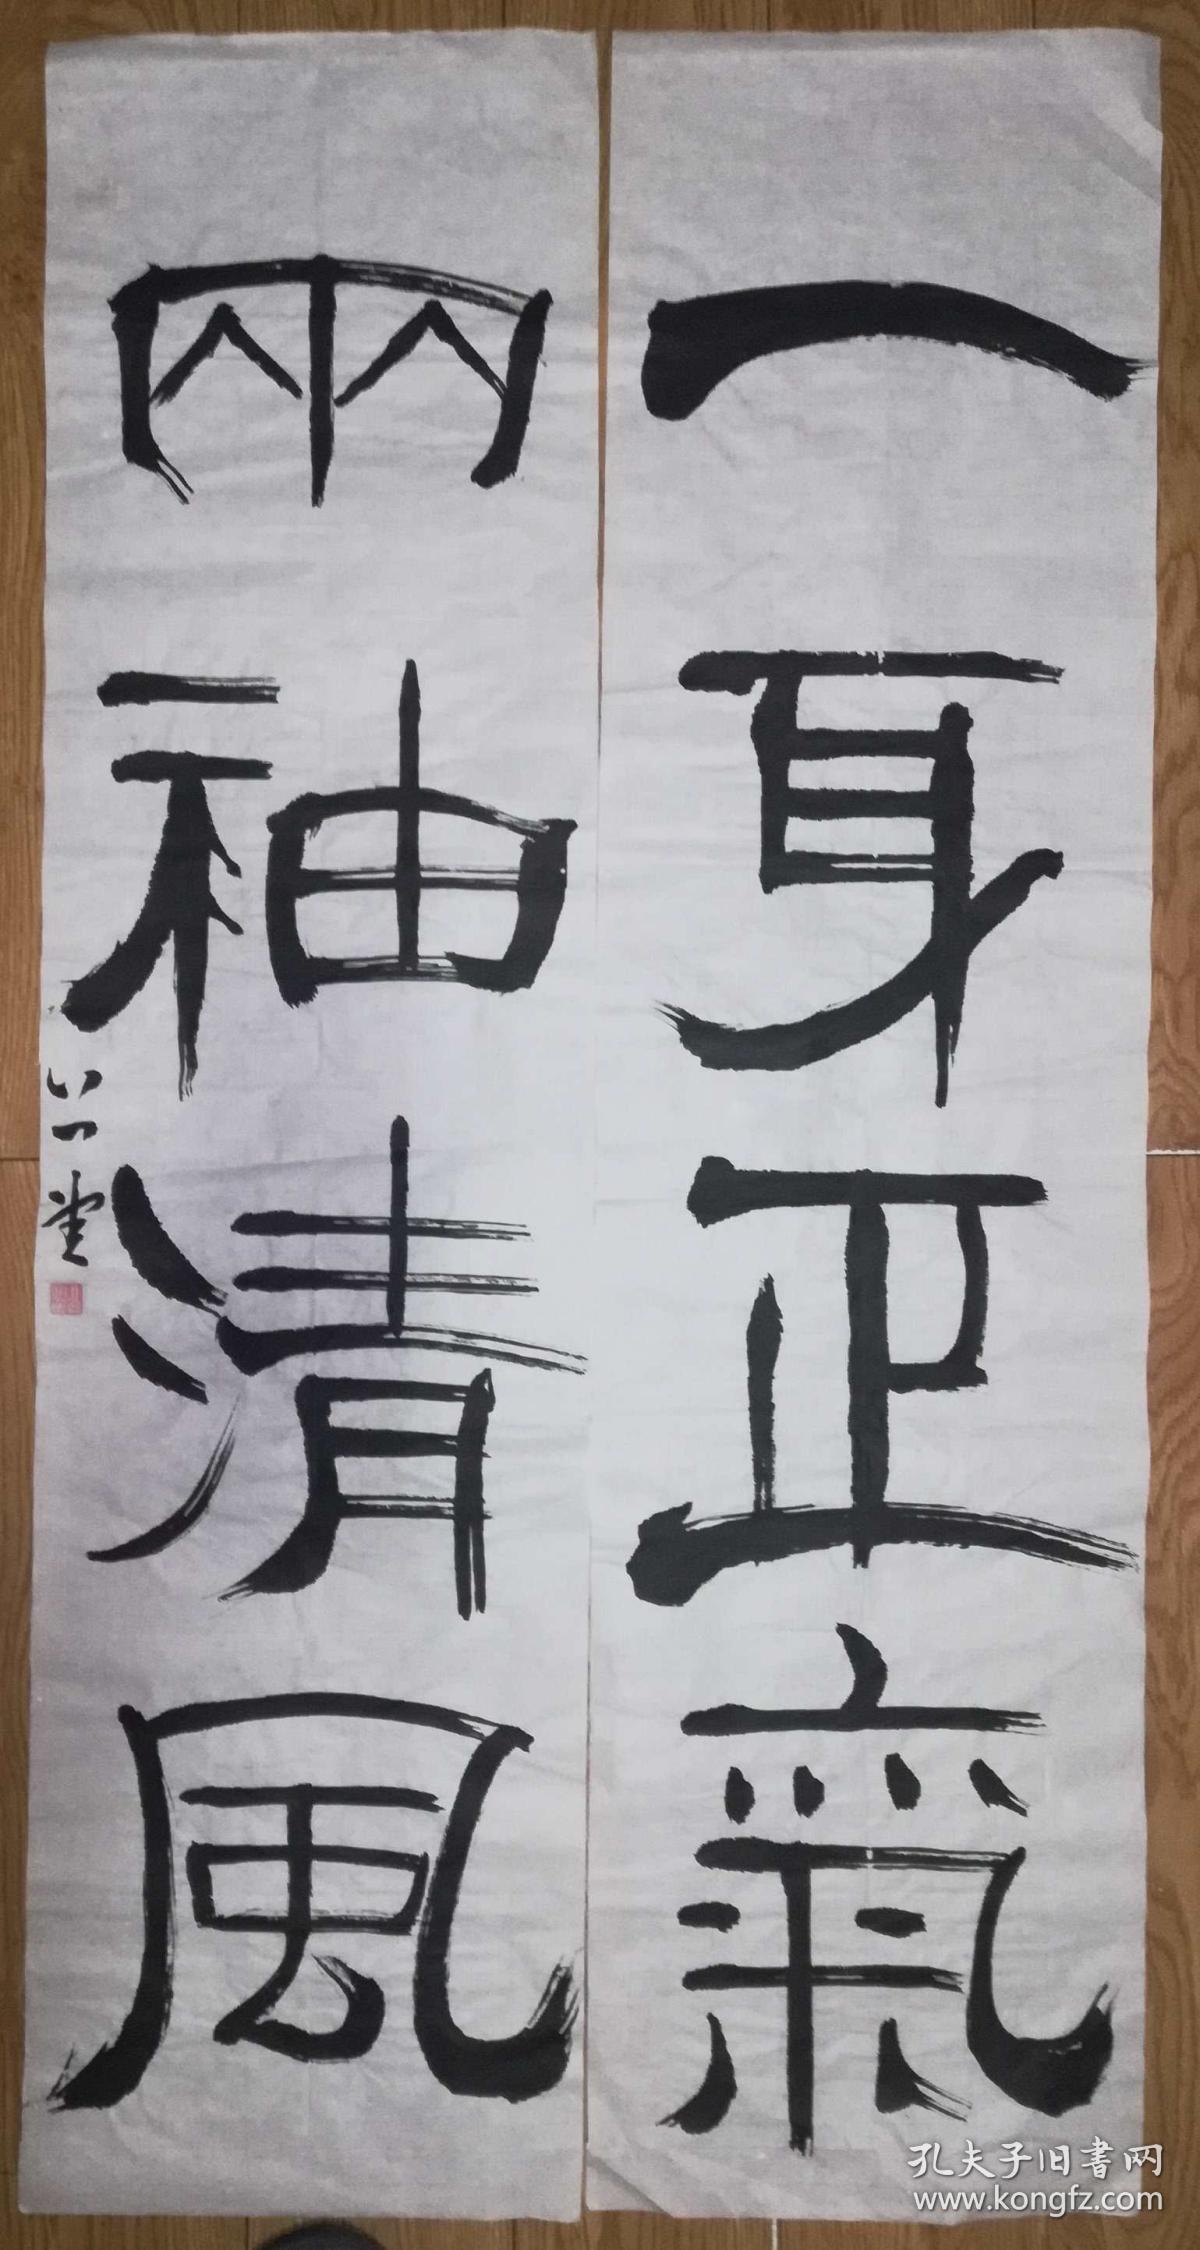 一身正氣
兩袖清風
孔夫子旧書网
www.kongfz.com